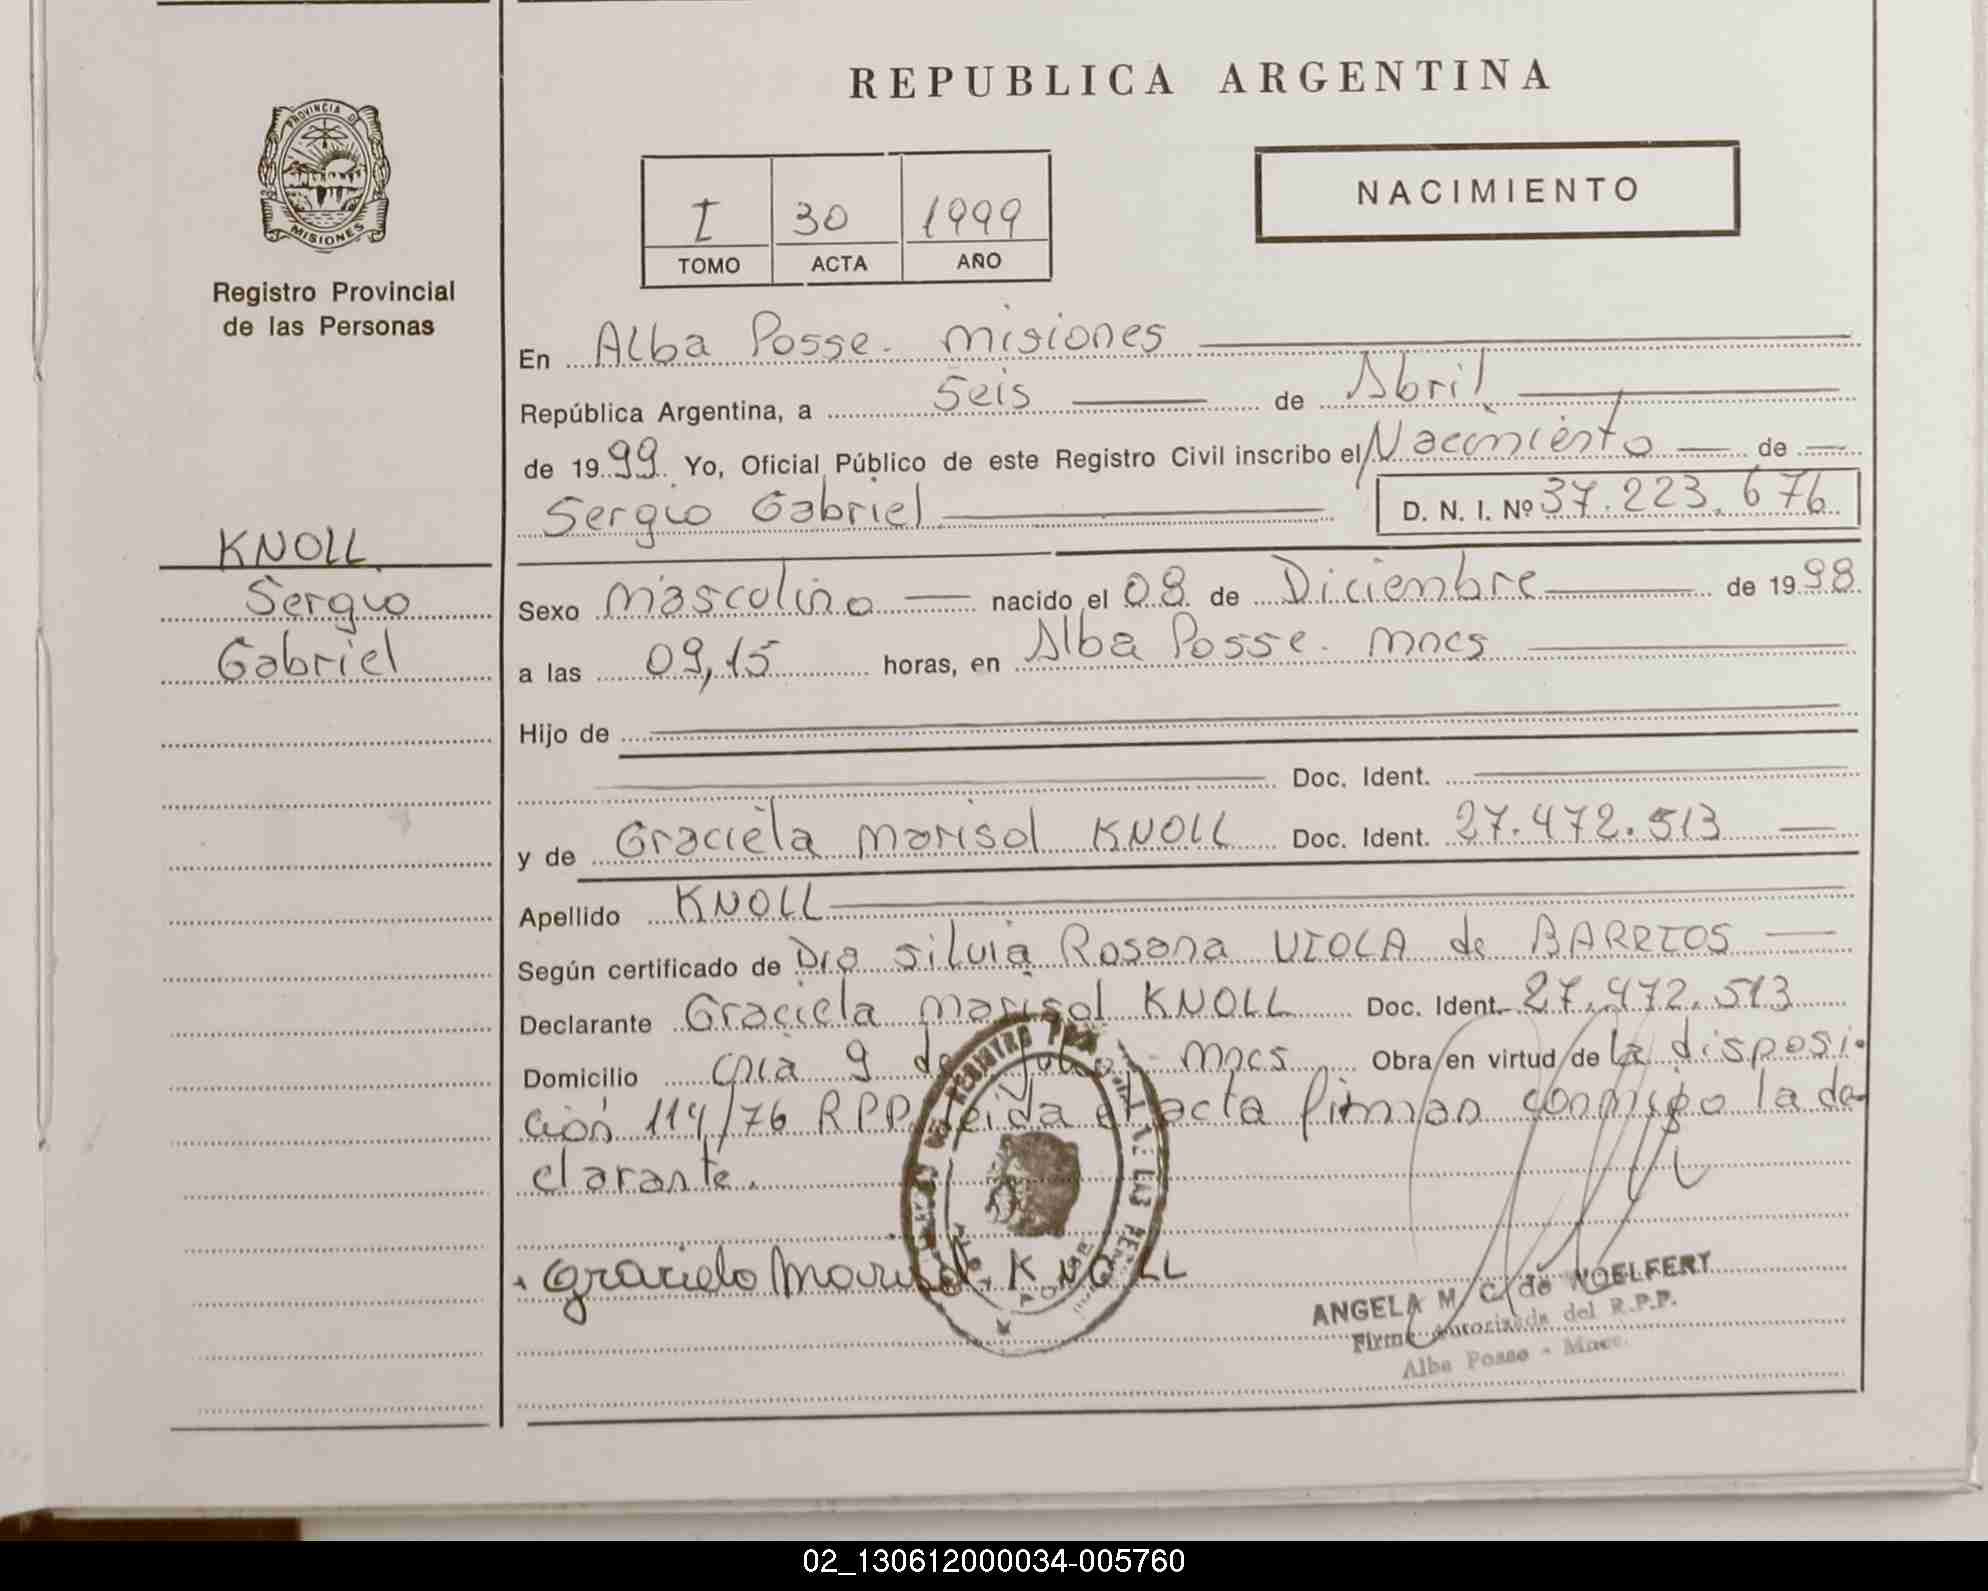 REPUBLICA ARGENTINA
PROVINCIA DE
MISIONES
Registro Provincial
de las Personas
I 30 1999
TOMO ACTA AÑO
NACIMIENTO
En Alba Posse. Misiones
República Argentina, a Seis de Abril
de 1999 Yo, Oficial Público de este Registro Civil inscribo el Nacimiento de
Sergio Gabriel D. N. I. Nº 37.223.676
KNOLL
Sergio
Gabriel
Sexo Masculino nacido el 08 de Diciembre de 1998
a las 09,15 horas, en Alba Posse. Mnes
Hijo de
Doc. Ident.
y de Graciela Marisol KNOLL Doc. Ident. 27.472.513
Apellido KNOLL
Según certificado de Dra Silvia Rosana VIOLA de BARRIOS
Declarante Graciela Marisol KNOLL Doc. Ident. 27.472.513
Domicilio Cnia 9 de Julio. Mnes Obra en virtud de la disposi-
ción 114/76 RPP. Leida el acta firman conmigo la de-
clarante.
Graciela Marisol KNOLL
ANGELA M. C. de WOELFERT
Firma Autorizada del R.P.P.
Alba Posse - Mnes.
02_130612000034-005760